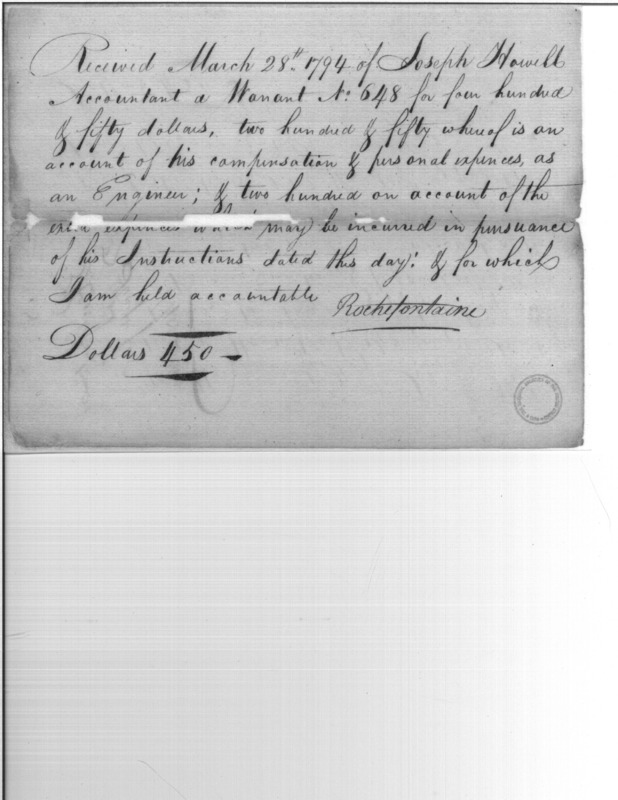 Received March 28th. 1794 of Joseph Howell
Accountant a Warrant No. 648 for four hundred
& fifty dollars, two hundred & fifty whereof is on
account of his compensation & personal expences, as
an Engineer; & two hundred on account of the
extra expences which may be incurred in pursuance
of his Instructions dated this day: & for which
I am held accountable
Rochefontaine
Dollars 450